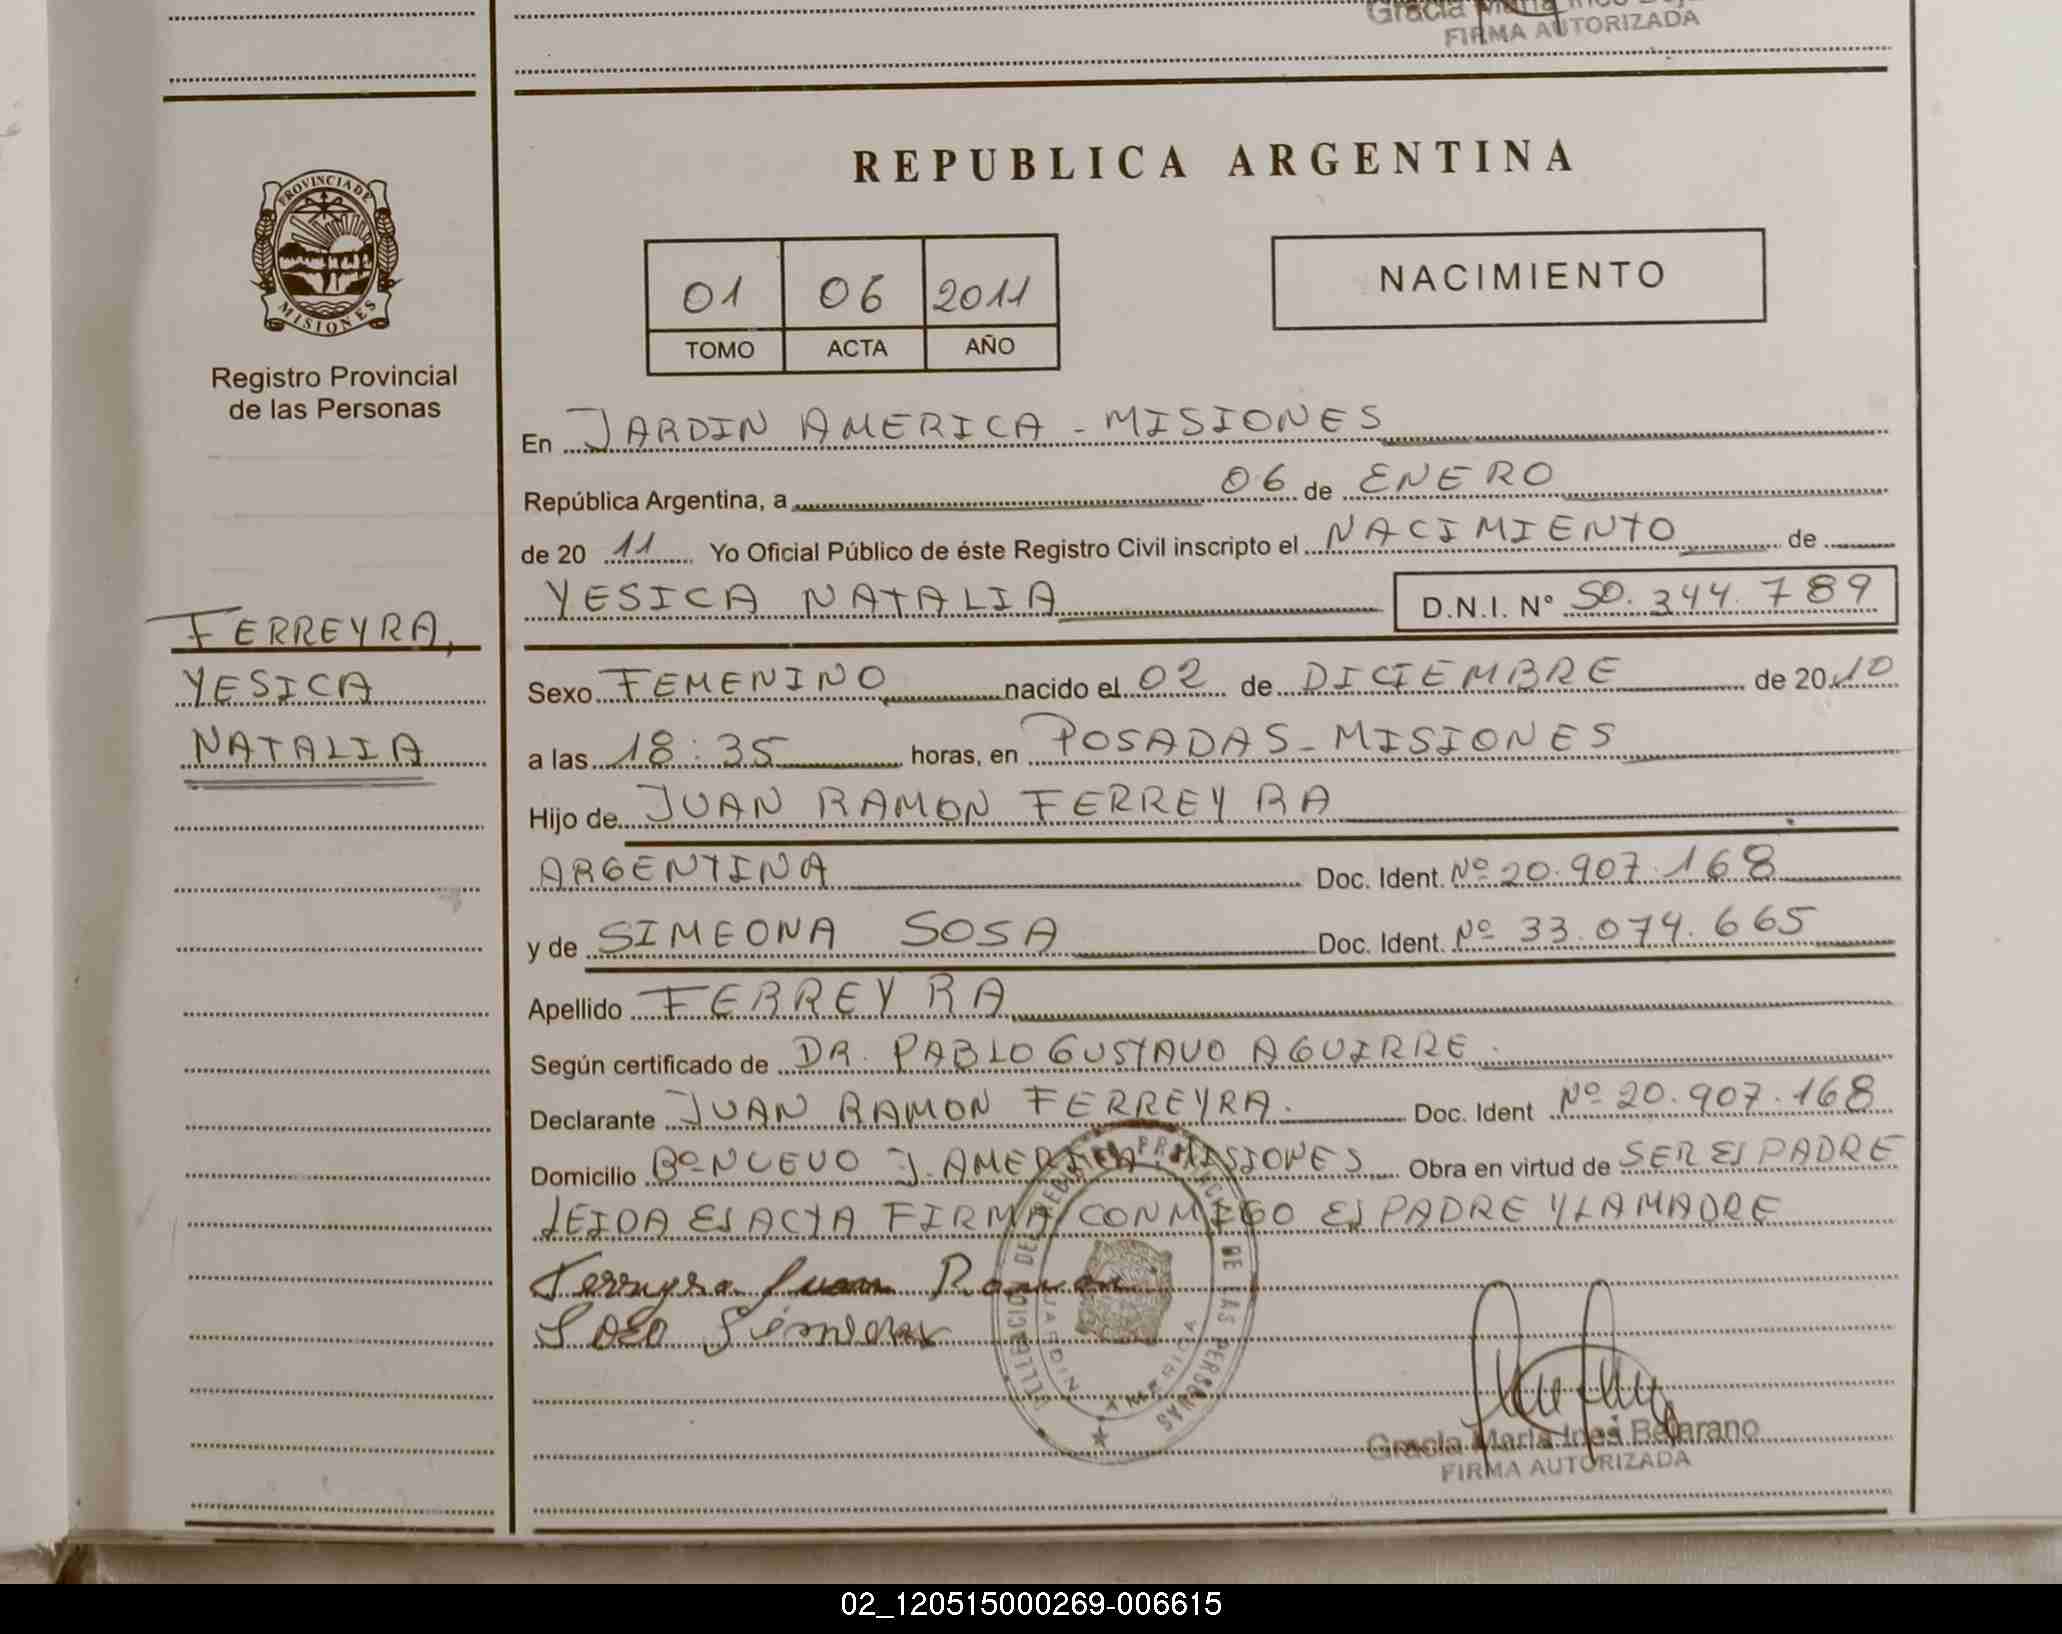 Gracia María Inés
FIRMA AUTORIZADA
PROVINCIA DE
MISIONES
Registro Provincial
de las Personas
FERREYRA,
YESICA
NATALIA
REPUBLICA ARGENTINA
01 06 2011
TOMO ACTA AÑO
NACIMIENTO
En JARDIN AMERICA - MISIONES
República Argentina, a 06 de ENERO
de 20 11 Yo Oficial Público de éste Registro Civil inscripto el NACIMIENTO de
YESICA NATALIA D.N.I. Nº 50.344.789
Sexo FEMENINO nacido el 02 de DICIEMBRE de 20 10
a las 18:35 horas, en POSADAS - MISIONES
Hijo de JUAN RAMON FERREYRA
ARGENTINA Doc. Ident. Nº 20.907.168
y de SIMEONA SOSA Doc. Ident. Nº 33.074.665
Apellido FERREYRA
Según certificado de DR. PABLO GUSTAVO AGUIRRE.
Declarante JUAN RAMON FERREYRA. Doc. Ident Nº 20.907.168
Domicilio Bº NUEVO J. AMERICA MISIONES Obra en virtud de SER EL PADRE
LEIDA EL ACTA FIRMA CONMIGO EL PADRE Y LA MADRE
Ferreyra Juan Ramon
Sosa Simeona
DE LAS PERSONAS
JARDIN AMERICA
Gracia María Inés Bejarano
FIRMA AUTORIZADA
02_120515000269-006615